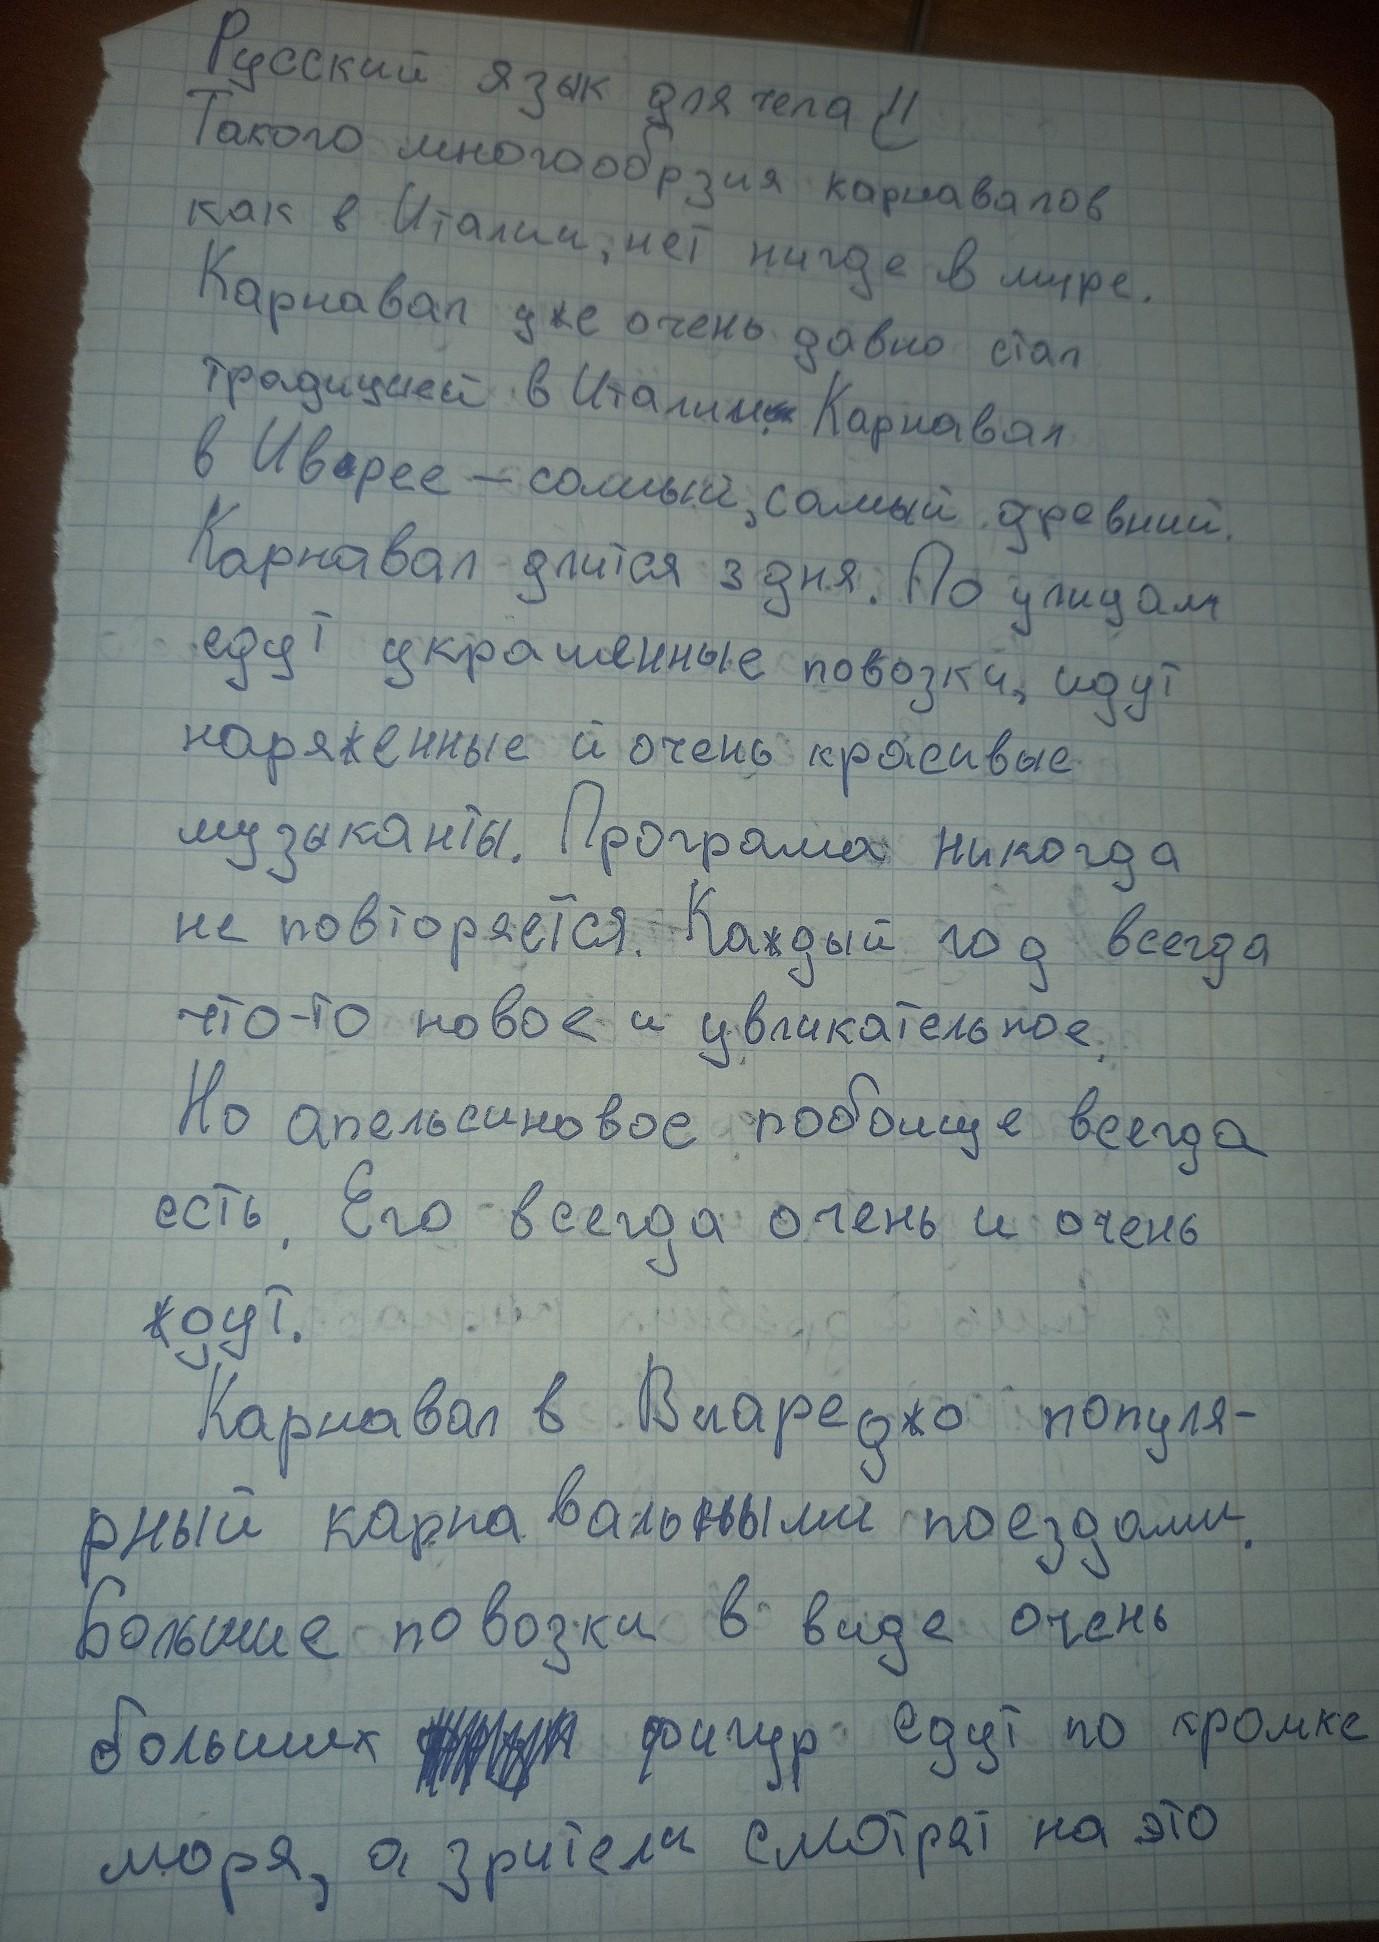 Русский язык для чела !!
Такого многаобрзия карнавалов
как в Италии, нет нигде в мире.
Карнавал уже очень давно стал
традицией в Италии. Карнавал
в Иврее – самый, самый древний.
Карнавал длится 3 дня. По улицам
едут украшенные повозки, идут
наряженные и очень красивые
музыканты. Програма никогда
не повторяется. Каждый год всегда
что-то новое и увликательное.
Но апельсиновое побоище всегда
есть. Его всегда очень и очень
ждут.
Карнавал в Виареджо популя-
рный карнавальными поездами.
Большие повозки в виде очень
больших фигур едут по кромке
моря, а зрители смотрят на это